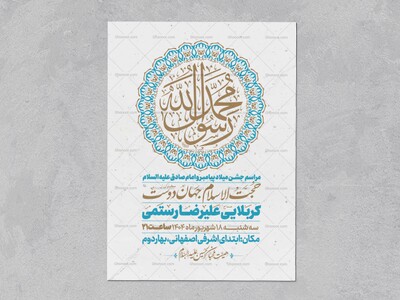 محمد رسول الله
مراسم جشن میلاد پیامبر و امام صادق علیه السلام
حجت الاسلام جهان دوست
کربلایی علیرضا رستمی
سه شنبه ۱۸ شهریور ماه ۱۴۰۴ ساعت ۲۱
مکان: ابتدای اشرفی اصفهانی، بهار دوم